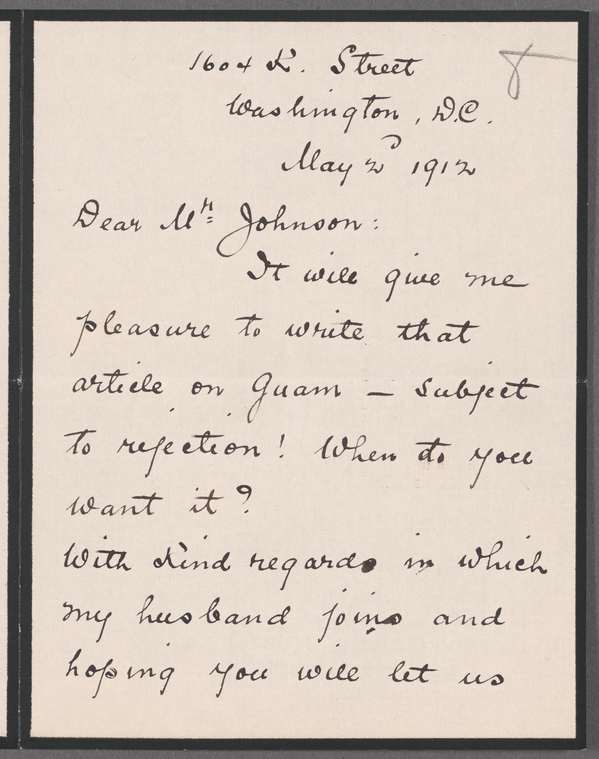 1604 K. Street
Washington, D.C.
May 2d 1912
Dear Mr. Johnson:
It will give me
pleasure to write that
article on Guam — subject
to rejection! When do you
want it?
With kind regards in which
my husband joins and
hoping you will let us